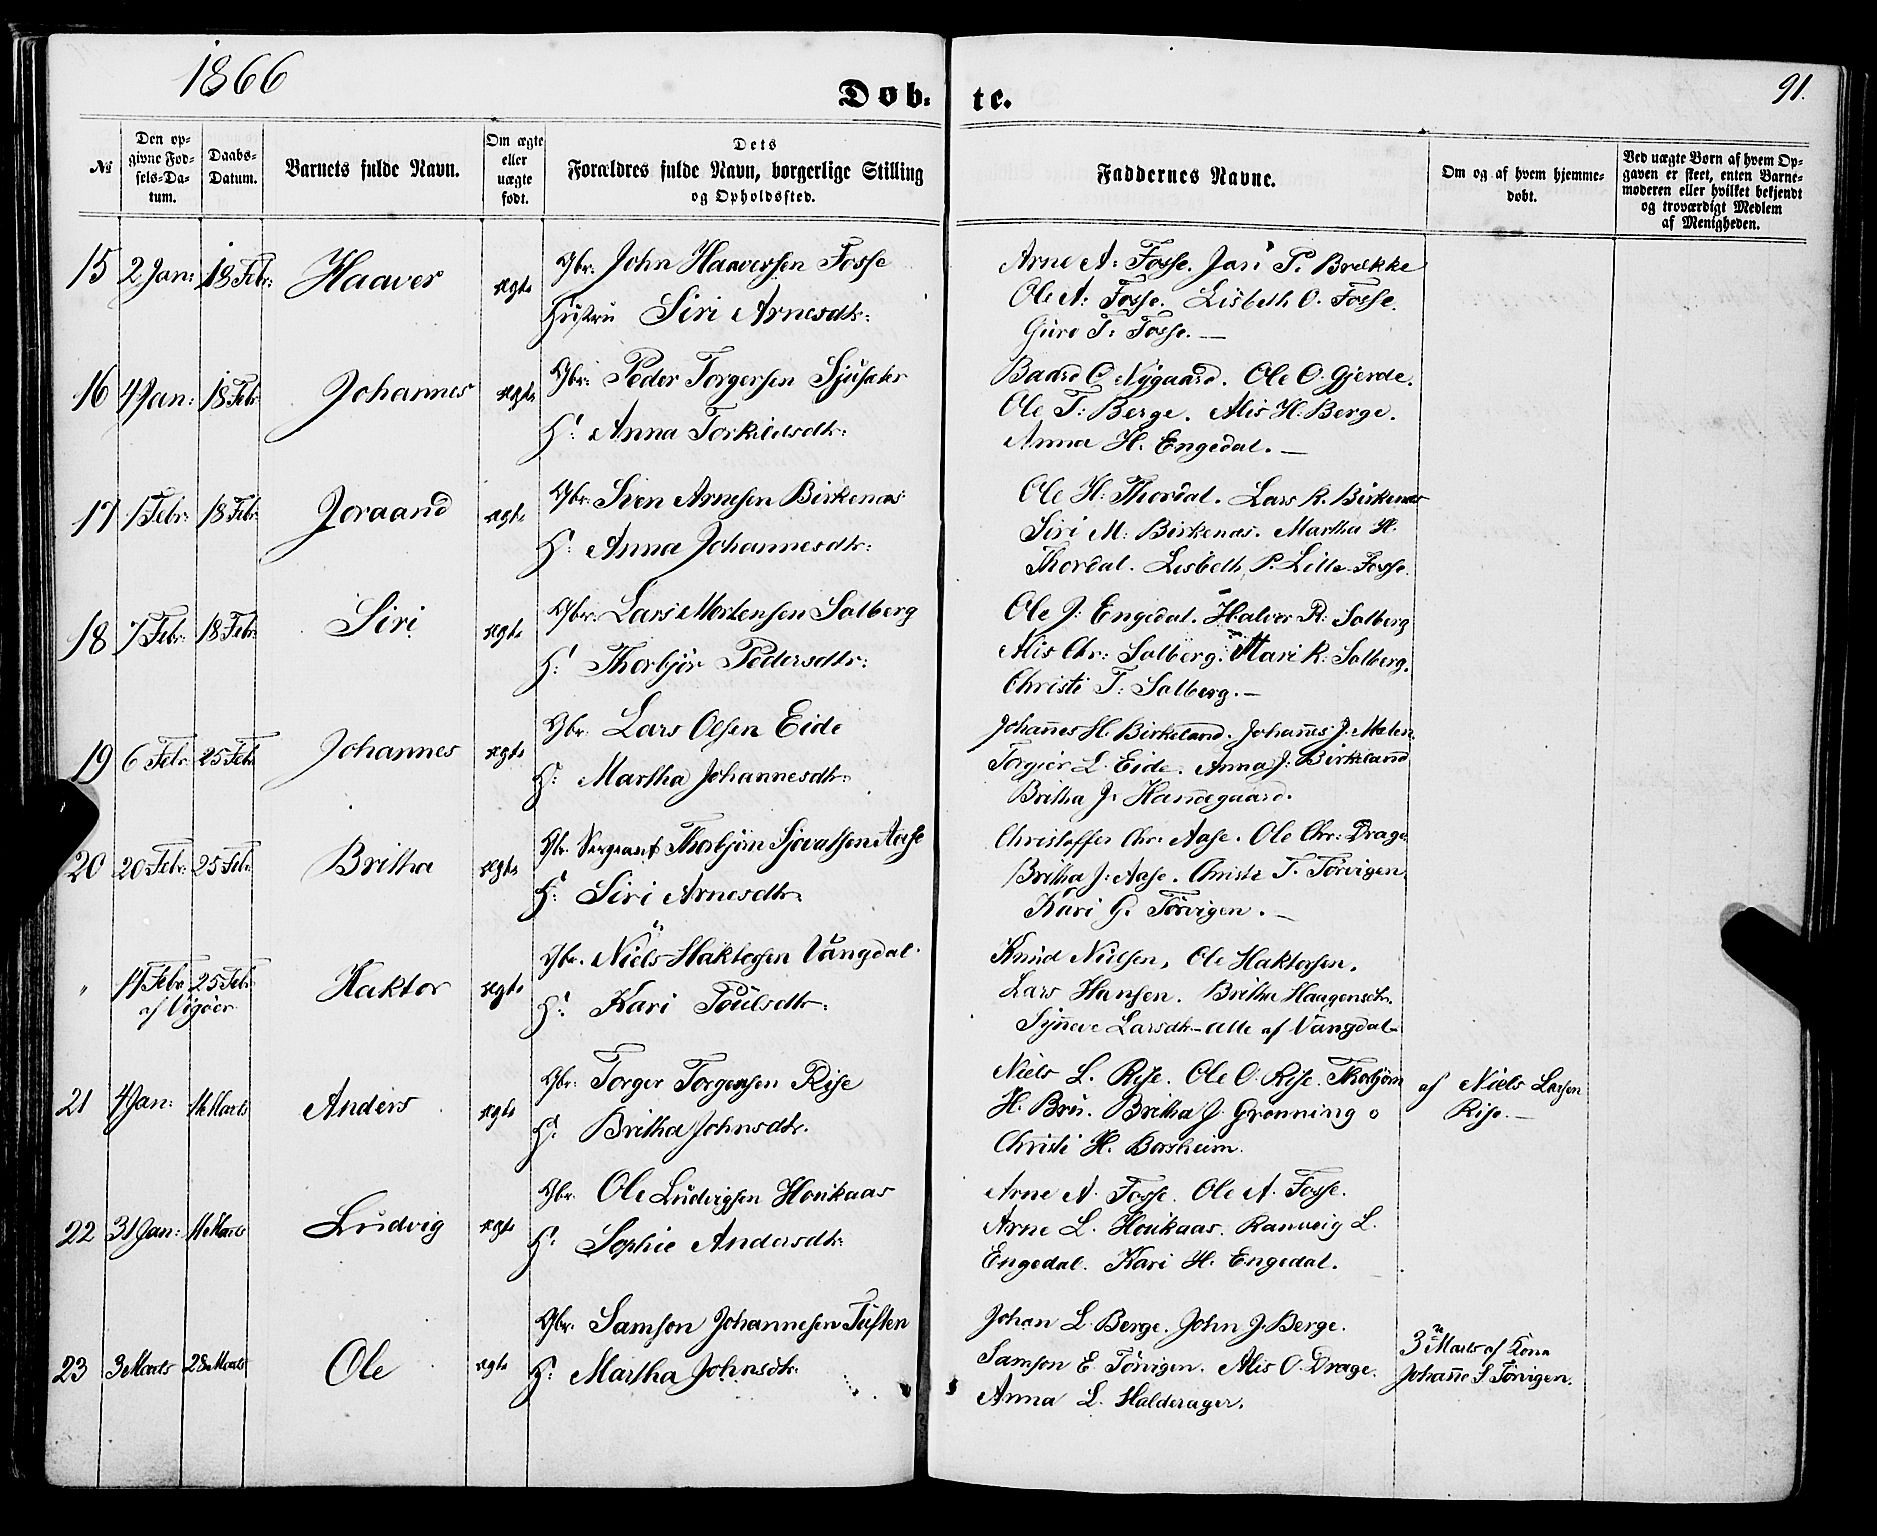 1866
Døb- te.
91.
№
Den op-
givne Fød-
sels-Da-
tum.
Daabs-
Datum.
Barnets fulde Navn.
Om ægte
eller
uægte
født.
Dets
Forældres fulde Navn, borgerlige Stilling
og Opholdssted.
Faddernes Navne.
Om og af hvem hjemme-
døbt.
Ved uægte Børn af hvem Op-
gaven er skeet, enten Barne-
moderen eller hvilket bekjendt
og troværdigt Medlem
af Menigheden.
15 2 Jan: 18 Febr: Haaver ægte Gbr. John Haaversen Fosse
Hustru Siri Arnesdtr:
Arne A: Fosse. Jari P. Brække
Ole A: Fosse. Lisbeth O. Fosse.
Guro T: Fosse. —
16 4 Jan: 18 Febr Johannes ægte Gbr: Peder Torgersen Sjusæter
H: Anna Torkildsdtr:
Baard O Nygaard. Ole O. Gjerde.
Ole T: Berge. Alis H: Berge.
Anna H. Engedal. —
17 1 Febr: 18 Febr: Joraand ægte Gbr: Sven Arnesen Birkenæs
H: Anna Johannesdtr:
Ole H: Thordal. Lars R. Birkenæs
Siri M: Birkenæs. Martha H.
Thordal. Lisbeth P. Lille-Fosse.
18 7 Febr: 18 Febr: Siri ægte Gbr: Lars Mortensen Solberg
H: Thorbjør Pedersdtr:
Ole J: Engedal. Halvor R: Solberg
Alis Chr: Solberg. Mari R: Solberg.
Christi T: Solberg. —
19 6 Febr 25 Febr Johannes ægte Gbr. Lars Olsen Eide
H: Martha Johannesdtr:
Johannes H. Birkeland. Johannes J. Melen
Torgier L. Eide. Anna J: Birkeland
Britha J: Handegaard.
20 20 Febr: 25 Febr: Britha ægte Gbr. Sergeant Thorbjørn Sjovatsen Aase
H: Siri Arnesdtr:
Christoffer Chr: Aase. Ole Chr: Drage
Britha J: Aase. Christi T. Törvigen
Kari G. Törvigen. —
" 14 Febr 25 Febr Haktor ægte Gbr. Niels Haktorsen Vangdal.
af Vigöer
H: Kari Poulsdtr:
Knud Nielsen, Ole Haktorsen.
Lars Hansen. Britha Haagensdtr.
Synneve Larsdtr – alle af Vangdal
21 4 Jan: 11 Marts Anders ægte Gbr: Torger Torgersen Rise
H: Britha Johnsdtr.
Niels L. Rise. Ole O. Rise. Thorbjørn
H. Bru. Britha J. Grønning o
Christi H. Borsheim.
af Niels Larsen
Rise. —
22 31 Jan: 11 Marts Ludvig ægte Gbr. Ole Ludvigsen Houkaas
H: Sophie Andersdtr:
Arne A. Fosse. Ole A. Fosse.
Arne L. Houkaas. Ranveig L.
Engedal. Kari H. Engedal.
23 3 Marts 28 Marts Ole ægte Gbr. Samson Johannesen Tuften
H: Martha Johnsdtr.
Johan L. Berge. John J. Berge.
Samson E. Törvigen. Alis O. Drage.
Anna L. Halderager.
3 Marts af Kona
Johanne S Törvigen.